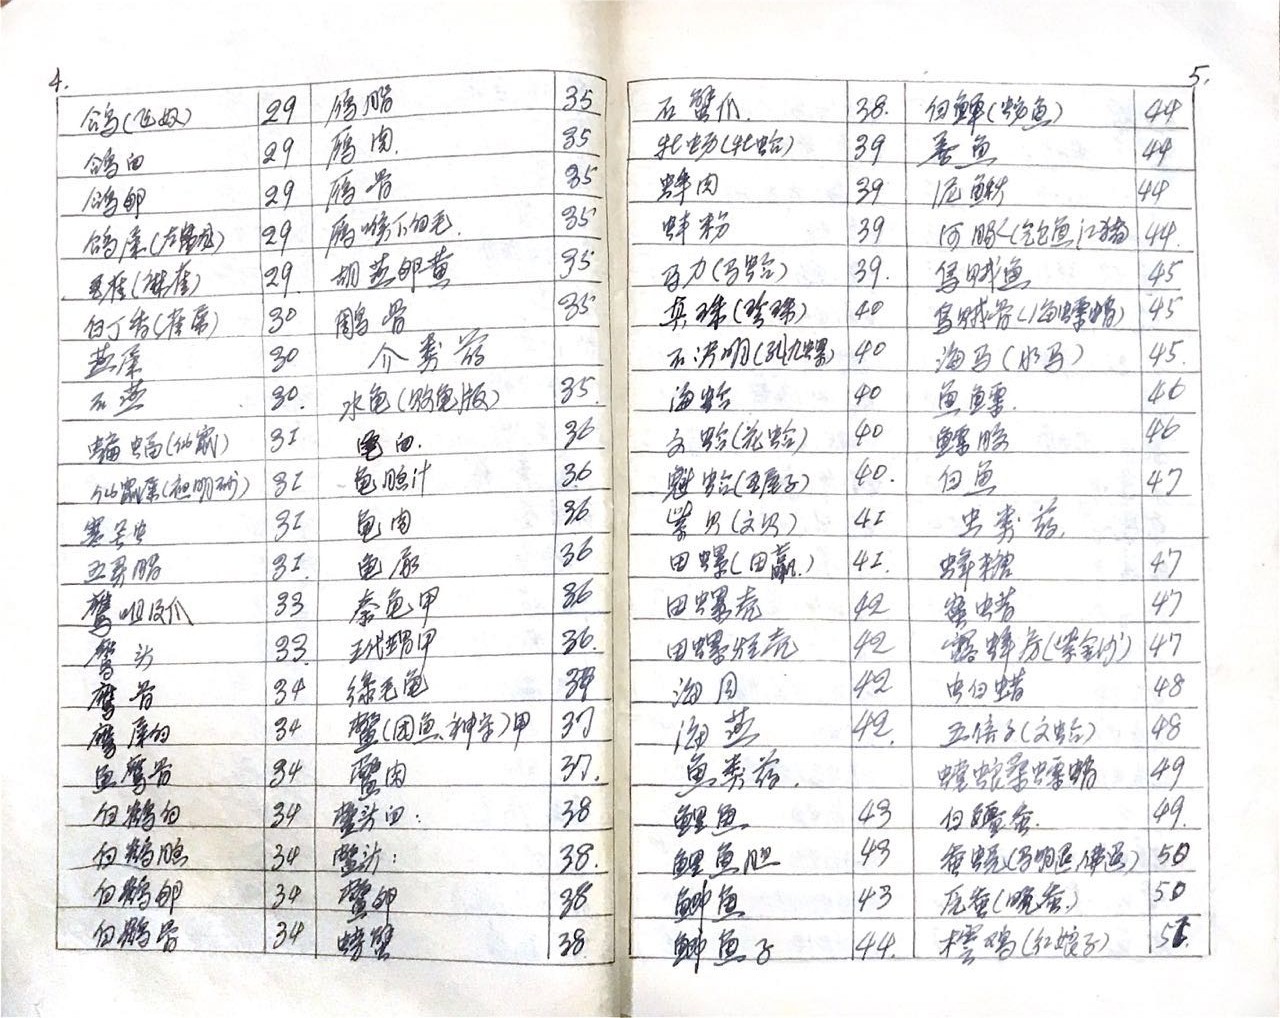 4.
鸽(飞奴) 29
鸽肉 29
鸽卵 29
鸽屎(左蟠龙) 29
雀(麻雀) 29
白丁香(雀屎) 30
燕屎 30
石燕 30.
蝙蝠(仙鼠) 31
仙鼠屎(夜明砂) 31
寒号虫 31
五灵脂 31.
鹰咀及爪 33
鹰头 33.
鹰骨 34
鹰屎白 34
鱼鹰骨 34
白鹤白 34
白鹤胆 34
白鹤卵 34
白鹤骨 34
雁脂 35
雁肉. 35
雁骨 35
雁喉下白毛. 35
胡燕卵黄 35
鹏骨 35
介类药
水龟(败龟版) 35.
龟血. 36
龟胆汁 36
龟肉 36
龟尿 36
秦龟甲 36
玳瑁甲 36.
绿毛龟
鳖(团鱼、神守)甲 37
鳖肉 37.
鳖头血: 38
鳖头: 38.
鳖卵 38
螃蟹 38
5.
石蟹爪. 38.
牡蛎(牡蛤) 39
蚌肉 39
蚌粉 39
马刀(马蛤) 39.
真珠(珍珠) 40
石决明(九孔螺) 40
海蛤 40
文蛤(花蛤) 40
魁蛤(瓦屋子) 40.
紫贝(文贝) 41
田螺(田蠃.) 41.
田螺壳 42
田螺烂壳 42
海月 42
海燕 42.
鱼类药.
鲤鱼 43
鲤鱼胆 43
鲫鱼 43
鲫鱼子 44.
白鲜(鱼) 44
鱼 44
泥鳅 44
河豚(鱼江猪 44.
乌贼鱼 45
乌贼骨(海螵蛸) 45
海马(水马) 45.
鱼鳔. 46
鳔胶 46
白鱼 47
虫类药.
蜂糖 47
蜜蜡 47
露蜂房(紫金沙) 47
虫白蜡 48
五倍子(文蛤) 48
螳螂桑螵蛸 49
白殭蚕. 49.
蚕蜕(马明退、佛退) 50
原蚕(晚蚕.) 50
樗鸡(红娘子) 51